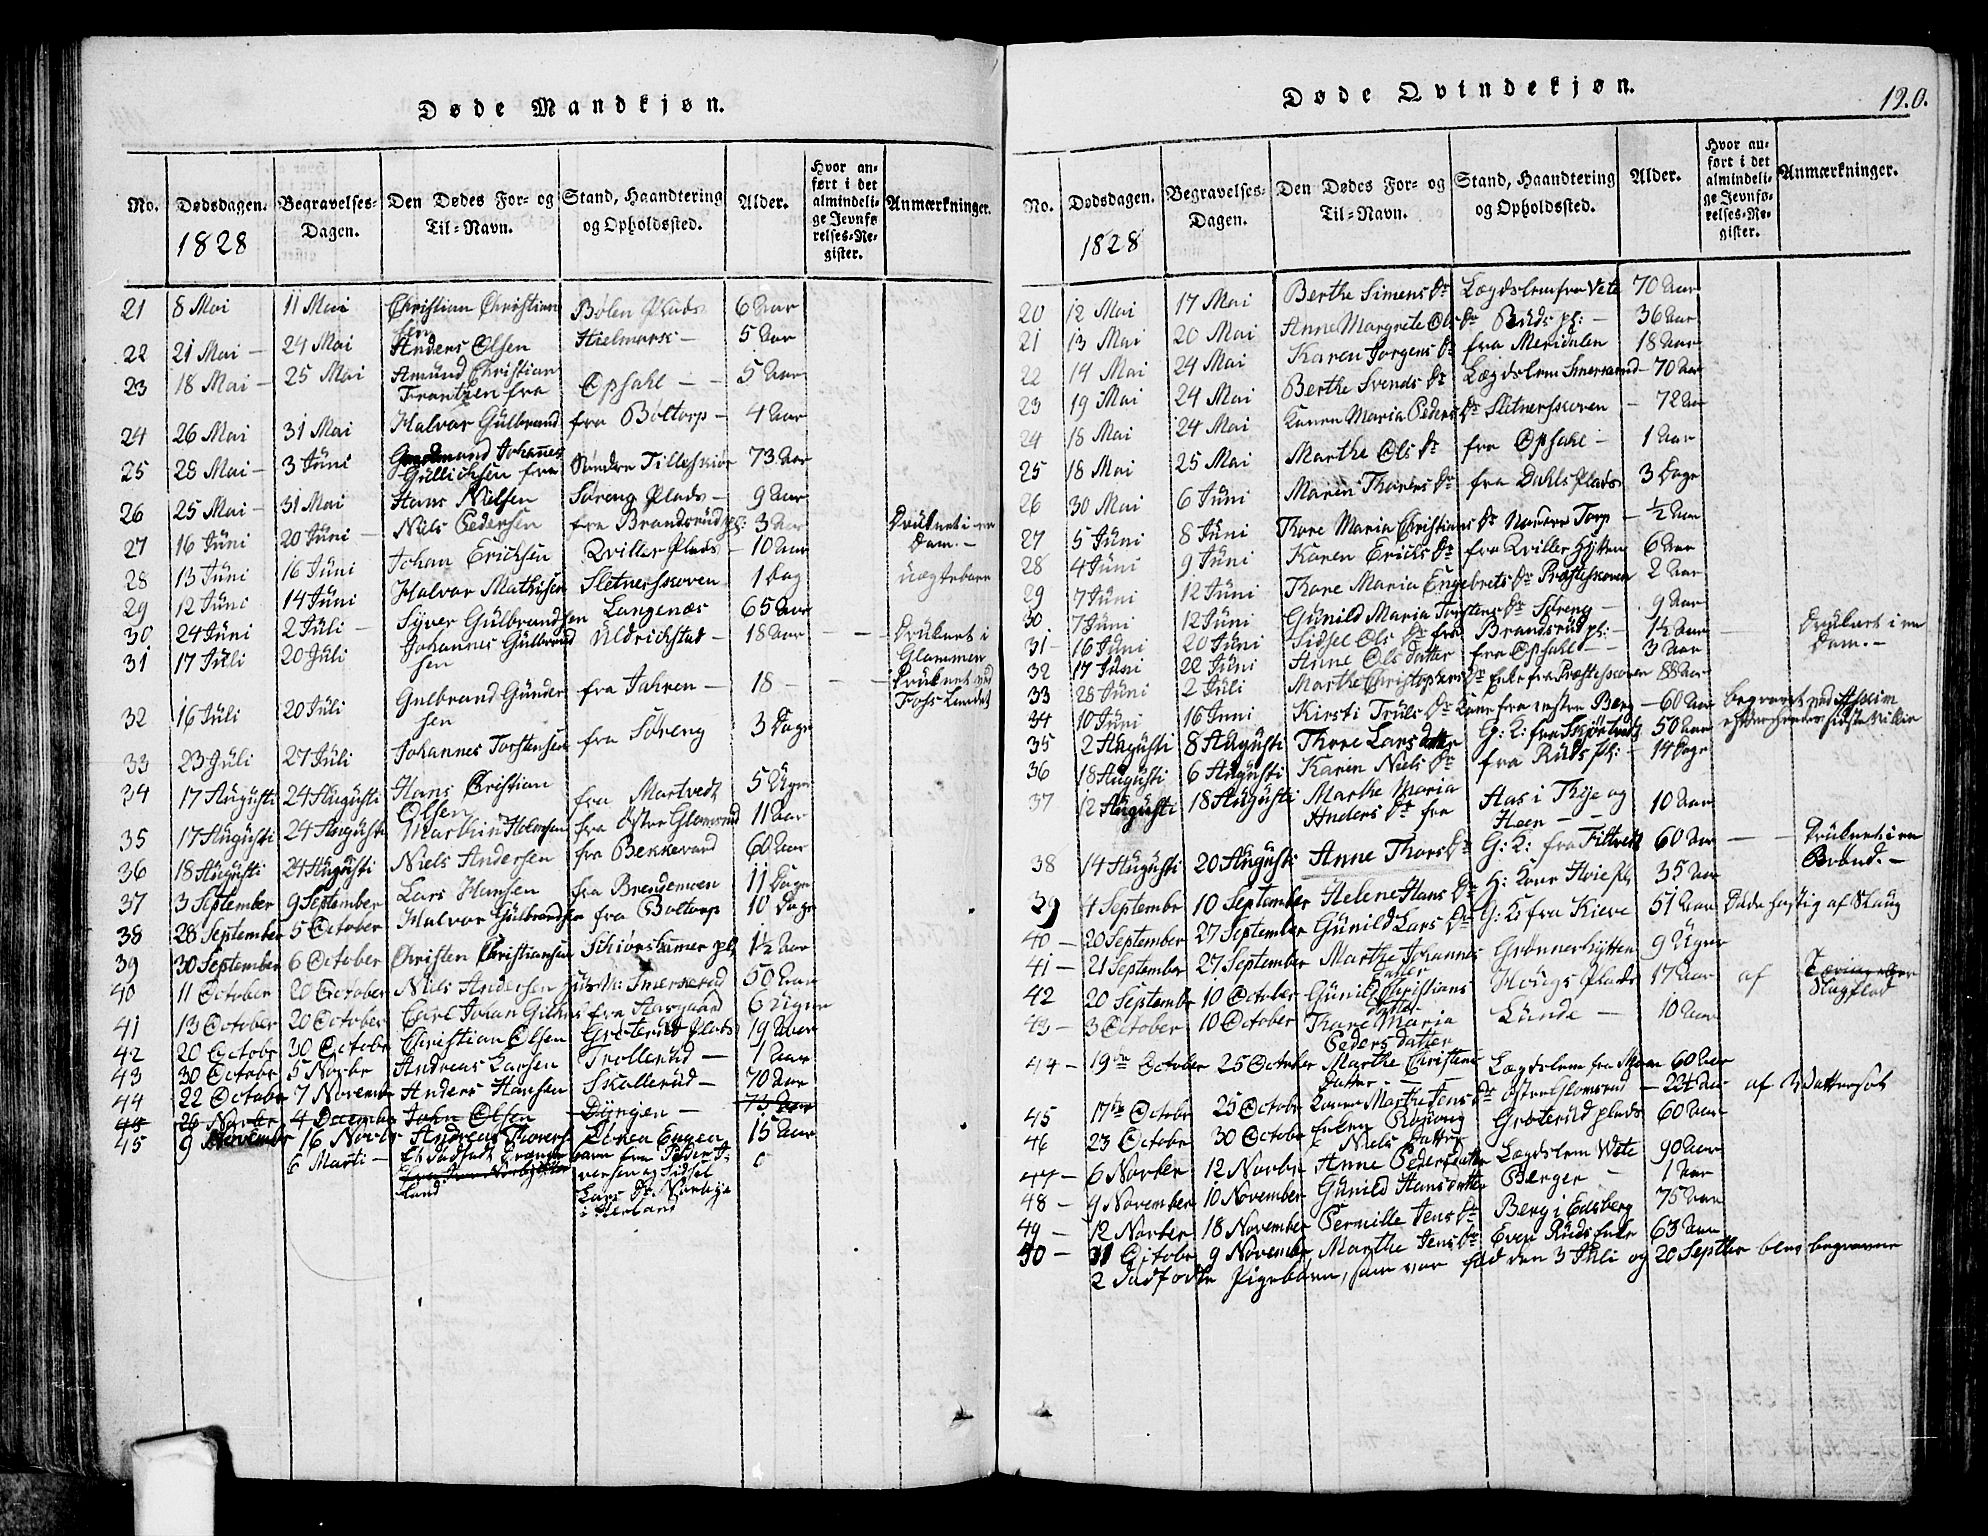 Døde Mandkjøn.
No. Dødsdagen. Begravelses-Dagen. Den Dødes For- og Til-Navn. Stand, Haandtering og Opholdssted. Alder. Hvor anført i det almindelige Jevnførelses-Register. Anmærkninger.
1828
21 8 Mai 11 Mai Christian Christian Bølen Plads 6 Aar
sen
22 21 Mai — 24 Mai Anders Olsen Hielmark — 5 Aar
23 18 Mai — 25 Mai Amund Christian
Frantzen fra Opsahl — 5 Aar
24 26 Mai 31 Mai Halvor Gulbrand fra Bøltorp — 4 Aar
25 28 Mai — 3 Juni Johannes
Gullichsen fra Søndre Tilleskiør 73 Aar
26 25 Mai — 31 Mai Hans Nielsen Søreng Plads — 9 Aar
27 16 Juni 20 Juni — Niels Pedersen fra Brandsrud pl: 3 Aar Druknet i en
Dam. —
28 13 Juni 16 Juni Johan Erichsen Qviller Plads — 10 Aar
29 12 Juni 14 Juni Halvor Mathisen Slitnerskoven 1 Dag uægtebarn
30 24 Juni 2 Juli — Syver Gulbrandsen Langenæs 65 Aar
31 17 Juli 20 Juli Johannes Gulbrand Uldrichstad — 18 Aar — — Druknet i
sen Glommen
32 16 Juli 20 Juli Gulbrand Gunder fra Jahren — 18 — — — Druknet ved
sen Fossundet
33 23 Juli 27 Juli Johannes Torstensen fra Søreng 3 Dage
34 17 Augusti 24 Augusti Hans Christian
Olsen fra Martvedt 5 Uger
35 17 Augusti 24 Augusti Marthin Holmsen fra østre Glomsrud 11 Aar
36 18 Augusti 24 Augusti Niels Andersen fra Bekkevard 60 Aar
37 3 September 9 September Lars Hansen fra Brendemoen 11 Dage
38 28 September 5 October Halvor Gulbrandsen fra Boltorp 10 Dage
39 30 September 6 October Christen Christiansen Schiørskamer pl. 1½ Aar
40 11 October 20 October Niels Andersen Smerserud 50 Aar
41 13 October 20 October Carl Johan fra Aarsgaard 6 Uger
42 20 October 30 October Christian Olsen Groterud Plads 19 Aar
43 30 Octobr 5 Novbr Andreas Larsen Trollerud — 1 Aar
44 22 October 7 November Anders Hansen Skallerud — 70 Aar
45 26 Novbr 4 December John Olsen Dyngjen — 73 Aar
45 9 November 16 Novbr Andreas Thores Østre Engen 15 Aar
6 Marti — Et dødfødt Drenge barn fra Peder I- 0
versen og Sidsel
land Lars Dr. Norbye
i Herland
Døde Qvindekjøn.
120.
No. Dødsdagen. Begravelses-Dagen. Den Dødes For- og Til-Navn. Stand, Haandtering og Opholdssted. Alder. Hvor anført i det almindelige Jevnførelses-Register. Anmærkninger.
1828
20 12 Mai 17 Mai Berthe Simens Dr Lægdslem fra Vete 70 Aar
21 13 Mai 20 Mai Anne Margrete Ols Dr Ruds pl: — 36 Aar
22 14 Mai 24 Mai Karen Jorgens Dr fra Meridalen 18 Aar
23 19 Mai 24 Mai Berthe Svends Dr Lægdslem Smerserud — 70 Aar
24 18 Mai 24 Mai Karen Maria Peders Dr Slitnersskoven — 72 Aar
25 18 Mai 25 Mai Marthe Ols Dr fra Opsahl — 1 Aar
26 30 Mai 6 Juni Maren Thores Dr fra Dahls Plads 3 Dage
27 5 Juni 8 Juni Thore Maria Christians Dr Nordre Torp — ½ Aar
28 4 Juni 9 Juni Karen Erichs Dr fra Qviller Hytten 6 Aar
29 7 Juni 12 Juni Thore Maria Engebrets Dr Præsteskoven 2 Aar
30 7 Juni 12 Juni Gunild Maria Torstens Dr Søreng — 9 Aar
31 — 16 Juni 20 Juni Sidsel Ols Dr fra Brandsrud pl: — 1½ Aar — Druknet i en
32 17 Juni 22 Juni Anne Ols datter fra Opsahl — 3 Aar Dam. —
33 28 Juni 2 Juli Marthe Christophers Dr Enke fra Præsteskoven 88 Aar
34 10 Juni 16 Juni Kirsti Truls Dr Kone fra vestre Berg — 60 Aar begravet ved Askim
35 2 Augusti 8 Augusti Thore Lars datter G: K: fra Skjøltvedt 50 Aar efter hendes sidste Villie
36 18 Augusti 6 Augusti Karin Niels Dr fra Ruds Pl: — 14 Dage
37 12 Augusti 18 Augusti Marthe Maria
Anders Dr fra Aas i Thye og
Heen — — 10 Aar
38 14 Augusti 20 Augusti Anne Thors Dr G: K: fra Tiltvedt 60 Aar — — Druknet i en
Brønd. —
39 4 September 10 September Helene Hans Dr G: Kone Hvie pl. 35 Aar
40 — 20 September 27 September Gunild Lars Dr G: K fra Kieve 51 Aar Døde hastig af Slaug
41 — 21 September 27 September Marthe Johannes
datter Grønnerhytten 9 Uger
42 20 September 10 October Gunild Christians
datter Hougs Plads 17 Aar af
Slagflod
43 — 3 October 10 October Thore Maria
Peders datter Lunde — 10 Aar
44 — 19de October 25 October Marthe Christens
datter — Lægdslem fra Moen 60 Aar
45 17de October 25 October Karen Marthe Jens Dr østre Glomsrud — 22½ Aar af Vattersot
46 23 October 30 October Enken
Niels datter Groterud plads 60 Aar
47 — 6 Novber 12 Novbr Anne Peders datter Lægdslem Vete 90 Aar
48 — 9 November 10 November Gunild Hans datter Berger — 1 Aar
49 — 12 Novber 18 November Pernille Jens Dr Berg i Eidsberg 75 Aar
50 — 31 October 9 November Marthe Jens Dr Even Ruds Enke 63 Aar
2 Dødfødte Pigebørn, som var fød den 3 Juli og 20 Septber blev begravne